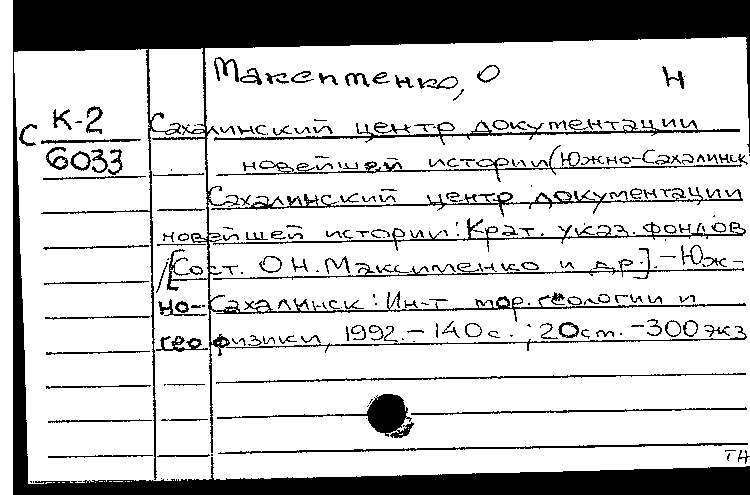 Максименко, О Н
С К-2
6033
Сахалинский центр документации
новейшей истории (Южно-Сахалинск
Сахалинский центр документации
новейшей истории: Крат. указ. фондов
/[Сост. О Н. Максименко и др.]. - Юж-
но-Сахалинск: Ин-т мор. геологии и
геофизики, 1992. - 140 с.; 20 см. - 300 экз
ТН